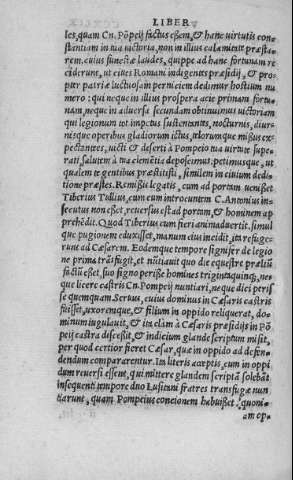 LIBER
les, quam Cn. Põpeij factus eßem, & hanc virtutis con
stantiam in tua victoria, non in illius calamitate præsta-
rem. cuius funestæ laudes, quippe ad hanc fortunam re
ciderunt, ut cives Romani indigentes præsidij, & pro-
pter patriæ luctuosam perniciem dedimur hostium nu
mero: qui neque in illius prospera acie primam fortu-
nam, neque in adversa secundam obtinuimus victoriam
qui legionum tot impetus sustentantes, nocturnis, diur-
nisque operibus gladiorum ictus, telorumque missus ex-
pectantes, victi & deserti à Pompeio tua virtute supe-
rati, salutem à tua clementia deposcimus, petimusque, ut
qualem te gentibus præstitisti, similem in civium dedi-
tione præstes. Remißis legatis, cum ad portam venißet
Tiberius Tullius, cum eum introeuntem C. Antonius in-
secutus non eßet, revertus est ad portam, & hominem ap
prehẽdit. Quod Tiberius cum fieri animadvertit, simul
que pugionem eduxisset, manum eius incidit, ita refuge-
runt ad Cæsarem. Eodemque tempore signifer de legio
ne prima trãsfugit, et nũtiavit quo die equestre præliũ
factũ eßet, suo signo perisse homines triginta quinq;, ne-
que licere castris Cn. Pompeij nuntiari, neque dici peris
se quemquam Servus, cuius dominus in Cæsaris castris
fuißet, uxoremque, & filium in oppido reliquerat, do-
minum iugulavit, & ita clam à Cæsaris præsidijs in Põ
peij castra dißeßit, & indicium glande scriptum misit,
per quod certior fieret Cæsar, quæ in oppido ad defen-
dendum compararentur. Ita literis acceptis, cum in oppi
dum reversi essent, qui mittere glandem scriptã solebãt
insequenti tempore duo Lusitani fratres transfugæ nun
tiarunt, quam Pompeius concionem habuißet, quoni-
am op-